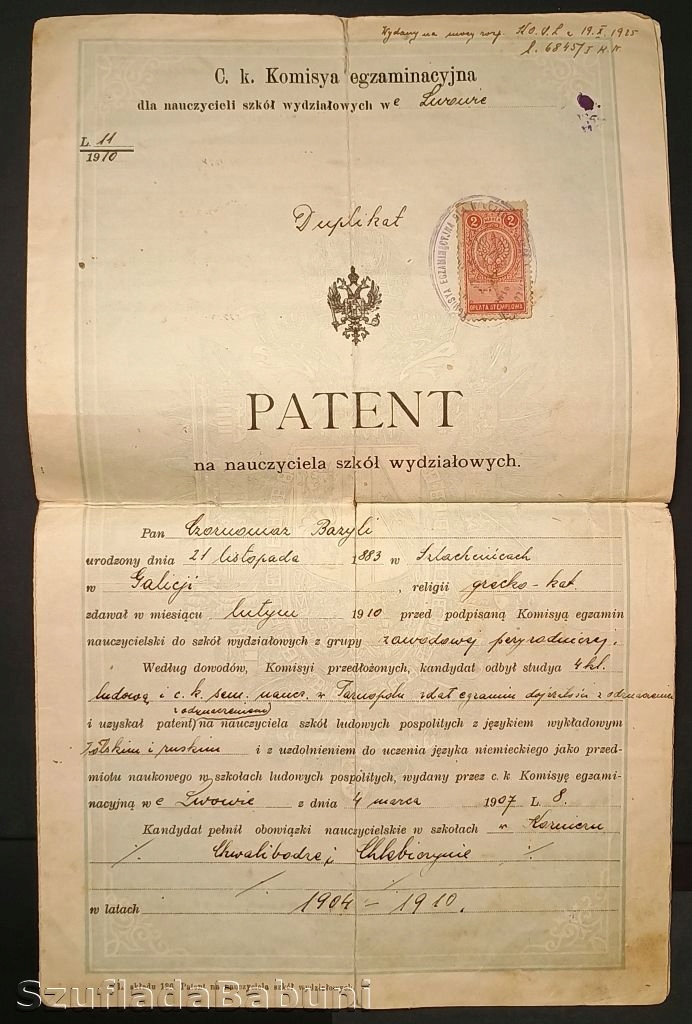 Wydany na mocy rozp. K.O.S.L. z 19.X.1925
l. 6845/I
C. k. Komisya egzaminacyjna
dla nauczycieli szkół wydziałowych we Lwowie
L. 11
1910
Duplikat
2 2
OPŁATA STEMPLOWA
PATENT
na nauczyciela szkół wydziałowych.
Pan Czornomaz Bazyli
urodzony dnia 21 listopada 1883 w Szlachcincach
w Galicji, religii grecko-kat.
zdawał w miesiącu lutym 1910 przed podpisaną Komisyą egzamin
nauczycielski do szkół wydziałowych z grupy zawodowej przyrodniczej.
Według dowodów, Komisyi przedłożonych, kandydat odbył studya 4 kl.
ludową i c. k. sem. naucz. w Tarnopolu zdał egzamin dojrzałości z odznaczeniem
z odznaczeniem
i uzyskał patent) na nauczyciela szkół ludowych pospolitych z językiem wykładowym
polskim i ruskim i z uzdolnieniem do uczenia języka niemieckiego jako przed-
miotu naukowego w szkołach ludowych pospolitych, wydany przez c. k Komisyę egzami-
nacyjną we Lwowie z dnia 4 marca 1907 L. 8.
Kandydat pełnił obowiązki nauczycielskie w szkołach w
i Chlebiczynie
w latach 1904 – 1910.
L. składu 120. Patent na nauczyciela szkół wydziałowych.
SzufladaBabuni